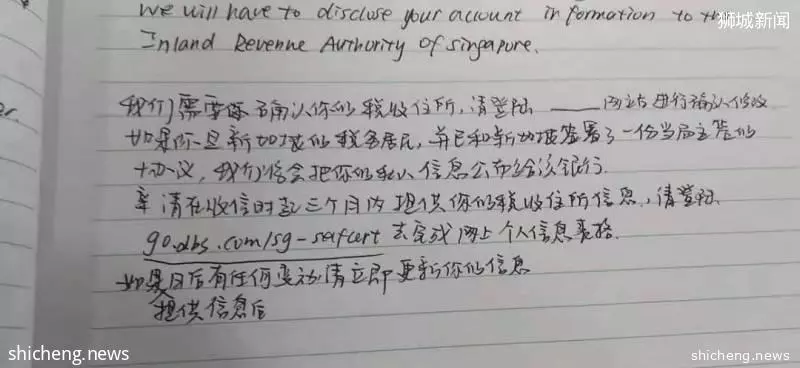 we will have to disclose your account information to the
狮城新闻
Inland Revenue Authority of singapore.
我们需要你确认你的税收住所,请登陆 ____ 网站进行确认修改
如果你是新加坡的税务居民,并已和新加坡签署了一份当局主管的
协议,我们将会把你的私人信息公布给该银行.
请在收信时起三个月内提供你的税收住所信息,请登陆
go.dbs.com/sg-selfcert 去完成网上个人信息表格.
如果日后有任何变动请立即更新你的信息
提供信息后
shicheng.news
shicheng.news